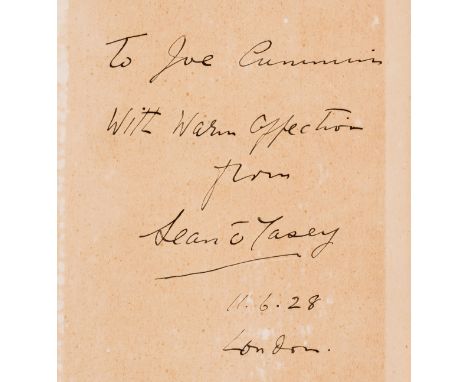 To Joe Cummins
With Warm Affection
from
Sean O'Casey
11.6.28
London.